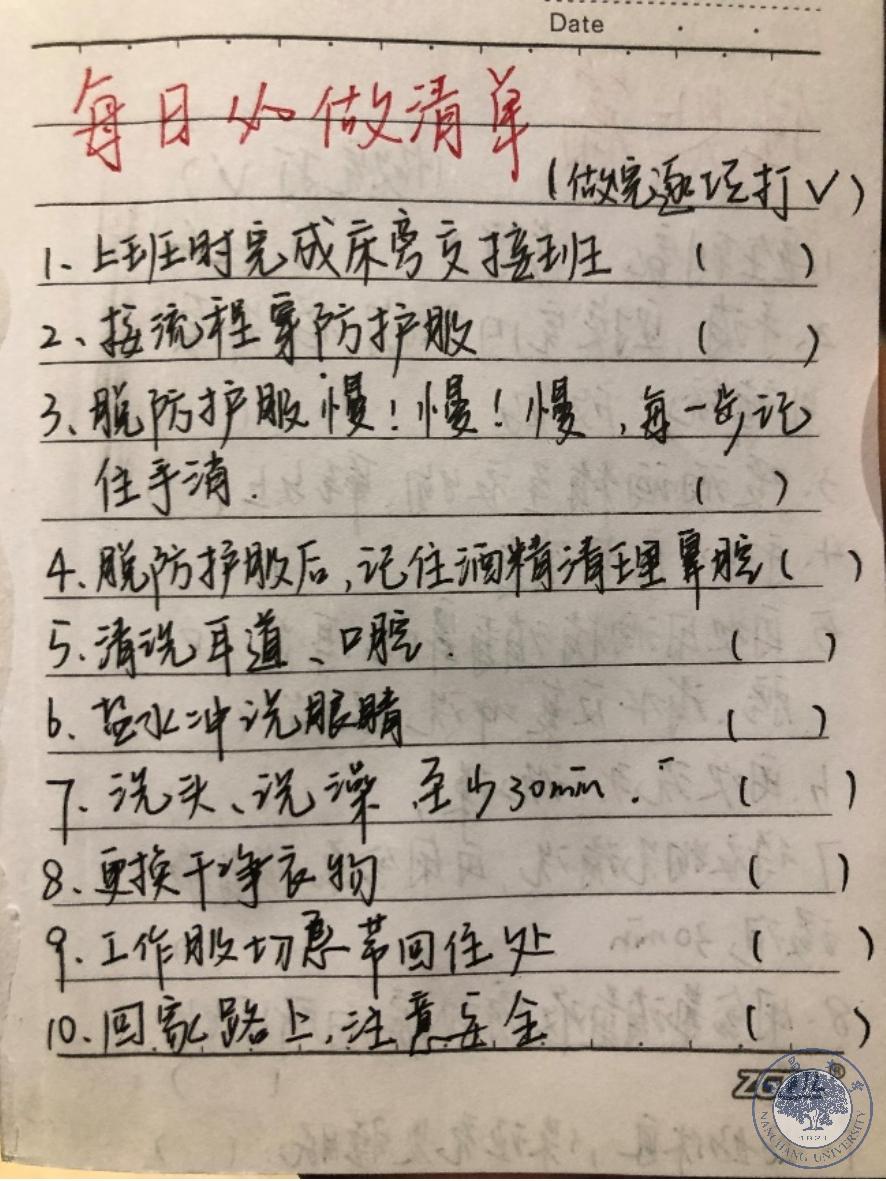 Date
每日必做清单
(做完逐项打√)
1、上班时完成床旁交接班 ( )
2、按流程穿防护服 ( )
3、脱防护服慢!慢!慢,每一步,记
住手消. ( )
4、脱防护服后,记住酒精清理鼻腔( )
5、清洗耳道、口腔. ( )
6、盐水冲洗眼睛 ( )
7、洗头、洗澡 至少30min. ( )
8、更换干净衣物 ( )
9、工作服切忌带回住处 ( )
10、回家路上,注意安全 ( )
NANCHANG UNIVERSITY
1921